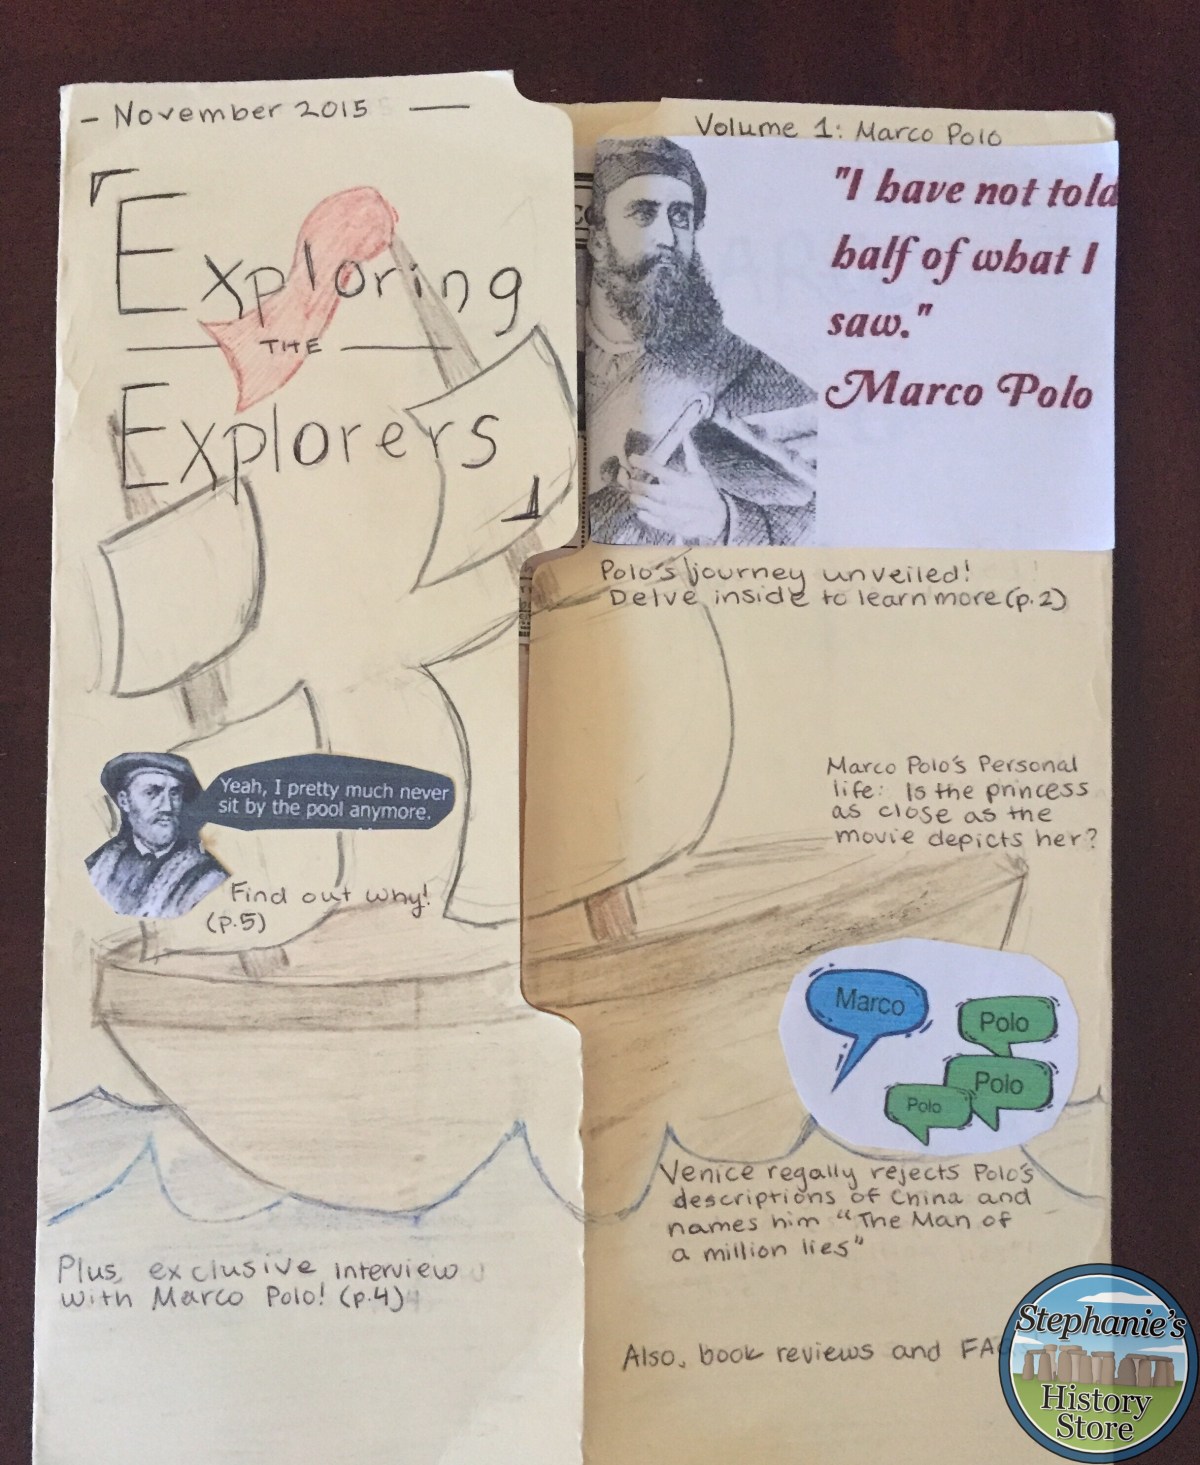 - November 2015 —
Volume 1: Marco Polo
Exploring
THE
Explorers
"I have not told
half of what I
saw."
Marco Polo
Polo's journey unveiled!
Delve inside to learn more (p.2)
Yeah, I pretty much never
sit by the pool anymore.
Find out why!
(p.5)
Marco Polo's Personal
life: Is the princess
as close as the
movie depicts her?
Marco
Polo
Polo
Polo
Venice regally rejects Polo's
descriptions of China and
names him "The Man of
a million lies"
Plus, exclusive interview
with Marco Polo! (p.4)
Also, book reviews and
Stephanie's
History
Store